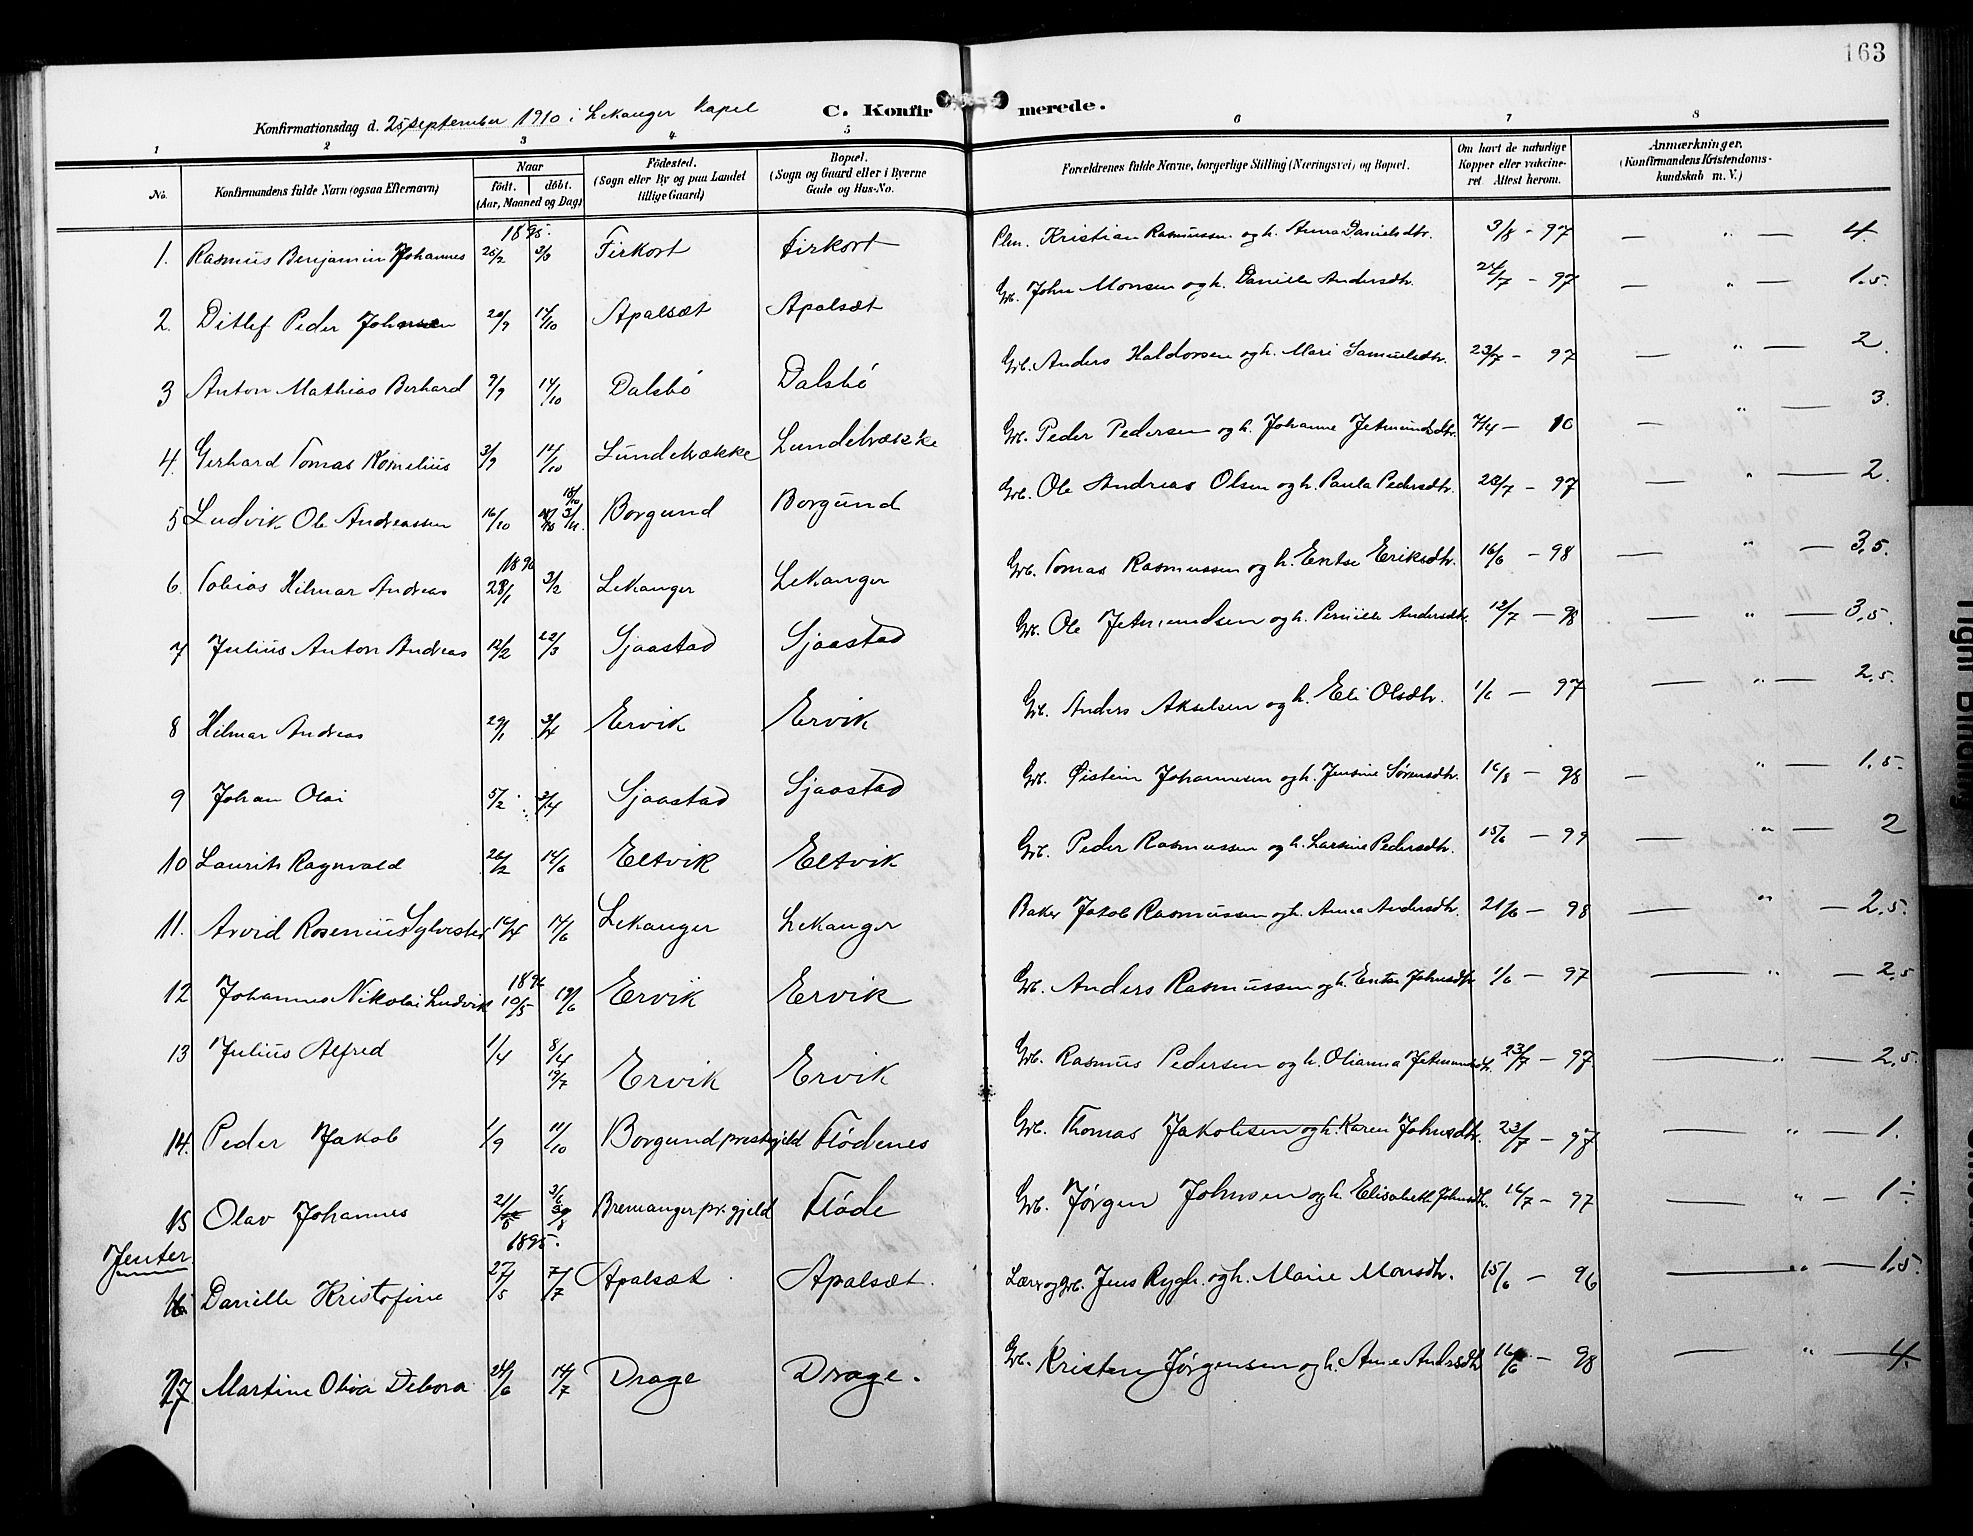 163
Konfirmationsdag d. 25 september 1910 i Lekanger Kapel
C. Konfirmerede.
1 2 3 4 5 6 7 8
No.
Konfirmandens fulde Navn (ogsaa Efternavn)
Naar
födt. döbt.
(Aar, Maaned og Dag)
Födested.
(Sogn eller By og paa Landet
tillige Gaard)
Bopæl.
(Sogn og Gaard eller i Byerne
Gade og Hus-No.
Forældrenes fulde Navne, borgerlige Stilling (Næringsvei) og Bopæl.
Om havt de naturlige
Kopper eller vakcine-
ret Attest herom.
Anmærkninger.
(Konfirmandens Kristendoms-
kundskab m. V.)
1895.
1. Rasmus Benjamin Johannes 25/2 3/3 Firkort Firkort Plm. Kristian Rasmussen og h. Anna Danielsdtr. 3/8 - 97 — " — 4.
2. Ditlef Peder Johnsen 20/9 14/10 Apalsæt Apalsæt Grb. John Monsen og h. Danielle Andersdtr. 24/7 - 97 — " — 1.5.
3 Anton Mathias Berhard 9/9 14/10 Dalsbö Dalsbö Grb. Anders Haldorsen og h. Mari Samuelsdtr. 23/7 - 97 — " — 2.
4. Gerhard Tomas Kornelius 3/9 14/10 Lundebrække Lundebrække Grb. Peder Pedersen og h. Johanne Jetmundsdtr. 7/4 - 10 — " — 3.
5 Ludvik Ole Andreassen 16/10 18/10 3/11. Borgund Borgund Grb. Ole Andreas Olsen og h. Paula Pedersdtr. 28/7 - 97 — " — 2.
1896
6. Tobias Hilmar Andreas 28/1 3/2 Lekanger Lekanger Grb. Tomas Rasmussen og h. Entse Eriksdtr. 16/6 - 98 — " — 3,5.
7 Julius Anton Andreas 12/2 22/3 Sjaastad Sjaastad Grb. Ole Jetmundsen og h. Pernille Andersdtr. 12/7 - 98 — " — 3,5.
8 Hilmar Andreas 29/1 3/4 Ervik Ervik Grb. Anders Akselsen og h. Eli Olsdtr. 1/6 - 97 — " — 2,5.
9 Johan Olai 5/2 3/4 Sjaastad Sjaastad Grb. Øistein Johannesen og h. Jensine Sørensdtr. 16/8 - 98 — " — 1,5.
10 Laurits Ragnvald 26/2 14/6 Eltvik Eltvik Grb. Peder Rasmussen og h. Larsine Pedersdtr. 15/6 - 99 — " — 2
11. Arvid Rosenius Sylvester 16/4 14/6 Lekanger Lekanger Baker Jakob Rasmussen og h. Anna Andersdtr. 21/6 - 98 — " — 2,5.
1896
12 Johannes Nikolai Ludvik 10/5 19/6 Ervik Ervik Grb. Anders Rasmussen og h. Entse Johnsdtr. 1/6 - 97 — " — 2,5
13 Julius Alfred 1/4 8/4 19/7 Ervik Ervik Grb. Rasmus Pedersen og h. Olianna Jetmundsdtr. 23/7 - 97. — " — 2,5.
14. Peder Jakob 1/9 11/10 Borgund prestegjeld Flödenes Grb. Thomas Jakobsen og h. Karen Johnsdtr. 23/7 - 97 — " — 1.
15 Olav Johannes 21/5 3/6 30/8 Bremanger pr.gjeld Flöde Grb. Jørgen Johnsen og h. Elisabeth Johnsdtr. 16/7 - 97 — " — 1÷
Jenter
1895.
16 Danielle Kristofine 27/5 7/7 Apalsæt. Apalsæt. Lærer og Grb. Jens Rygh. og h. Marie Monsdtr. 15/6 - 96 — " — 1,5.
17 Martine Oliva Debora 24/6 14/7 Drage Drage. Grb. Kristen Jørgensen og h. Anne Andrsdtr. 16/6 - 98 — " — 4.
Tight Binding